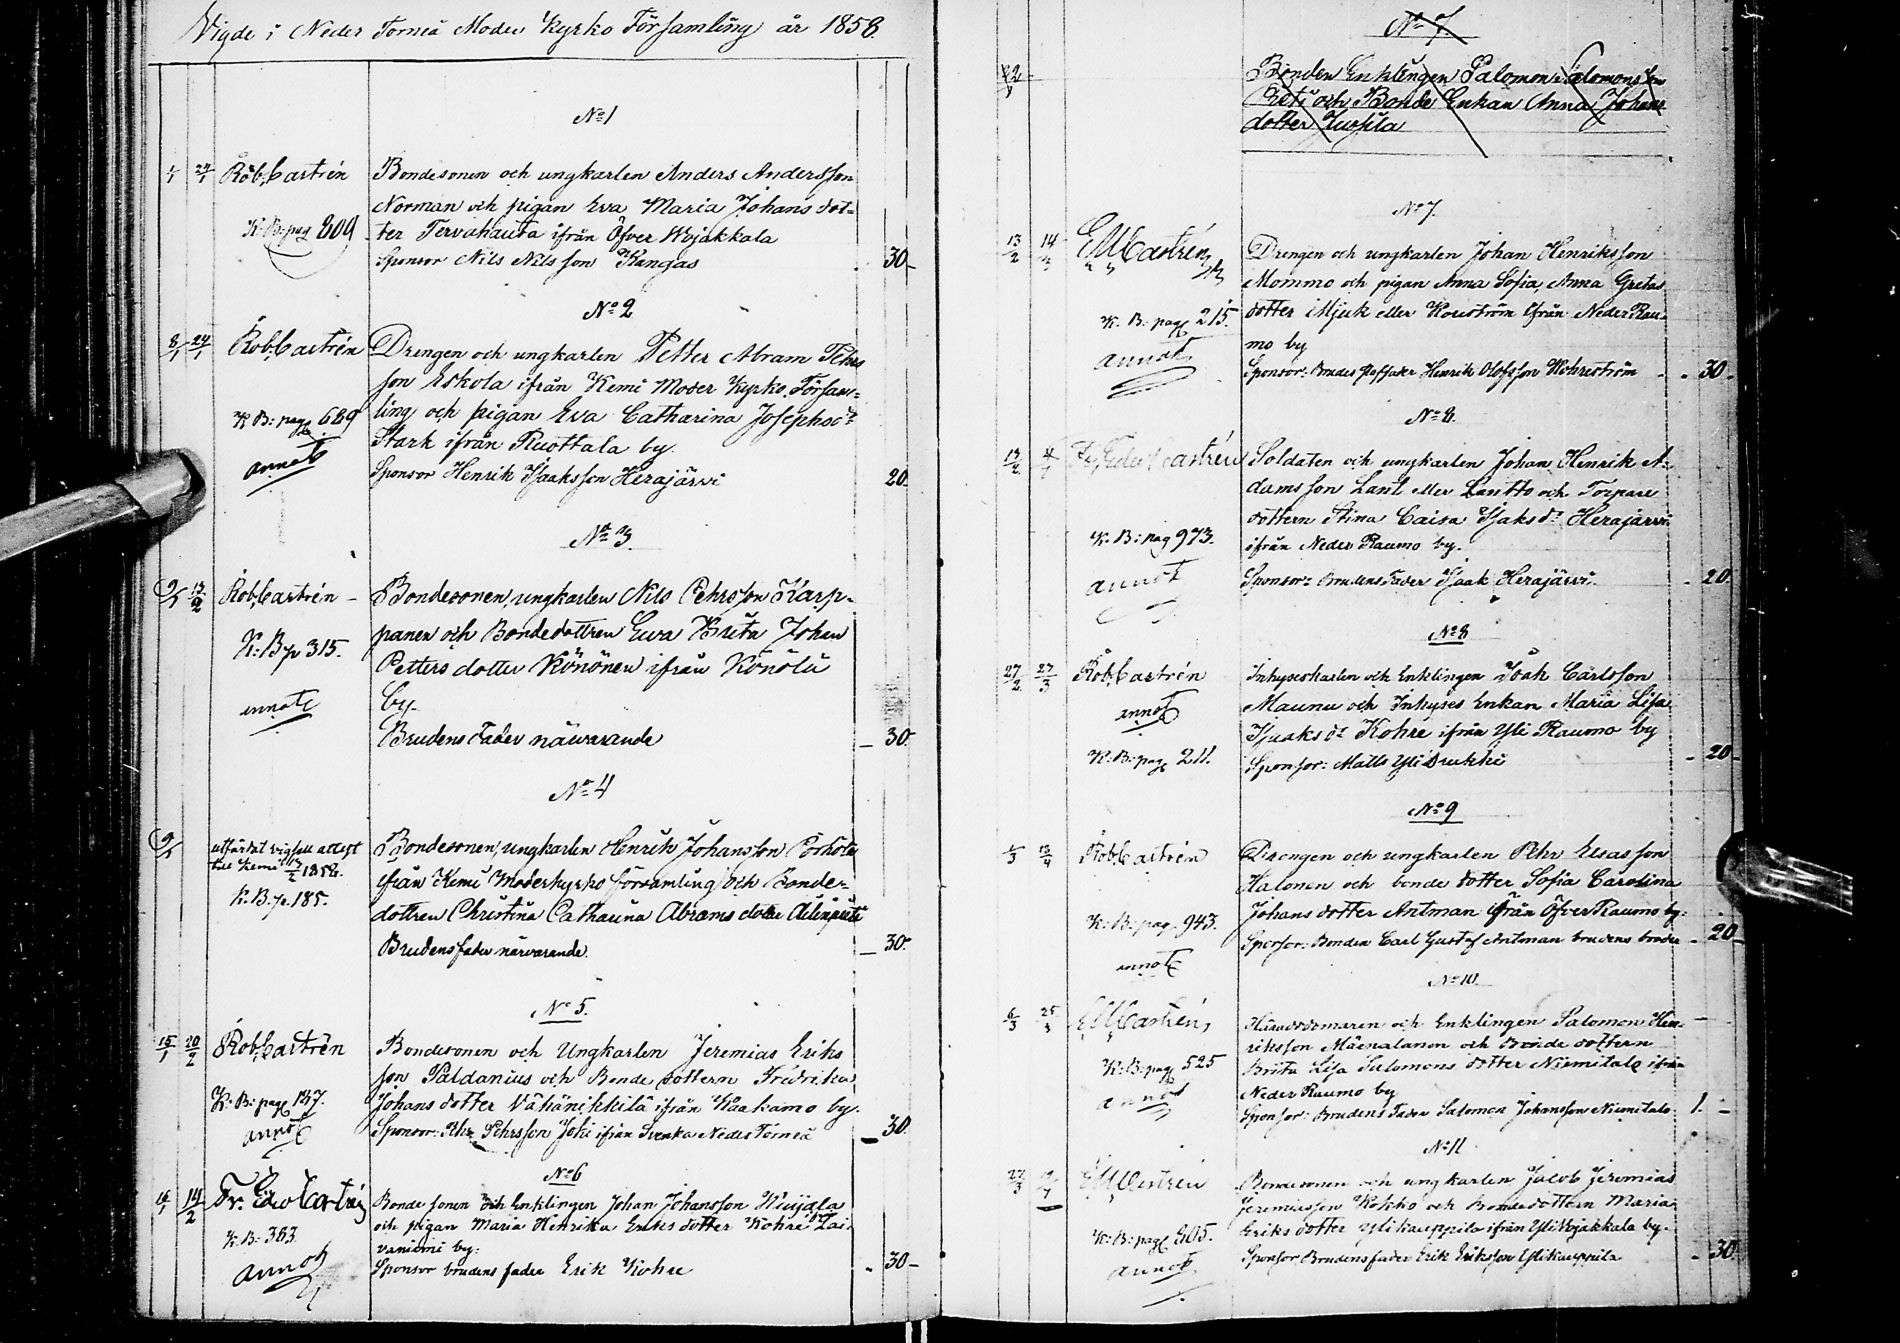 Vigde i Neder Torneå Moder Kyrko Församling år 1858.
No 1
1/1 24/1 Rob. Castrén Bondesonen och ungkarlen Anders Andersson
Norman och pigan Eva Maria Johans dot-
K: B: pag 209 ter Tervahauta ifrån Öfver Wojakkala
Sponsor Nils Nils son Kangas 30
No 2
8/1 24/1 Rob. Castrén Drengen och ungkarlen Petter Abram Pehrs
son Eskola ifrån Kemi Moder Kyrko Försam-
K: B: pag 689 ling och pigan Eva Catharina Josephsdr
Stark ifrån Ruottala by.
annot Sponsor Henrik Isaksson Herajärvi 20
No 3
9/1 13/2 Rob. Castrén Bondesonen, ungkarlen Nils Pehrsson Karp-
panen och Bondedottren Ewa Brita Johan
K: B p 315. Petters dotter Könönen ifrån Könölä
annot by
Brudens Fader närvarande 30
No 4
9/1 utfärdat vigsell attest Bondesonen, ungkarlen Henrik Johansson
till Kemi 1858. ifrån Kemi Moderkyrko församling och Bonde-
K. B. p. 185. dottren Christina Catharina Abrams dotter
Brudens fader närvarande. 30
No 5.
15/1 20/2 Rob. Castrén Bondesonen och Ungkarlen Jeremias Eriks
son Paldanius och Bonde dottern Fredrika
K: B: pag 137. Johans dotter Vähänikkilä ifrån Kaakamo by.
annot Sponsor: Pehr Pehrsson Joki ifrån Svenska Neder Torneå 30
No 6
14/2 Fr. Edv Castrén Bonde sonen och Enklingen Johan Johansson
och pigan Maria Henrika Eriks dotter Kohre Lai-
K: B: 363 vaniemi by:
annot Sponsor brudens fader Erik Kohre 30
No 7
Bonden Enklingen Salomon Salomonsson
och Bonde Enkan Anna Johans
dotter
No 7.
13/2 14/3 Castrén Drengen och ungkarlen Johan Henriksson
Mommo och pigan Anna Sofia, Anna Gretas
K. B: pag 215. dotter Mjuk eller ifrån Neder Rau-
mo by
annot Sponsor: Brudes Henrik Olofsson 30
No 8.
13/2 Castrén Soldaten och ungkarlen Johan Henrik A-
damsson Lant eller Lantto och Torpare
dottern Stina Caisa Isaks dr Herajärvi
K. B: pag 973. ifrån Neder Raumo by.
annot Sponsor: Brudens Fader Isaak Herajärvi 20
No 8
27/2 27/3 Rob. Castrén Inhyseskarlen och Enklingen Isak Carlsson
annot Maunu och Inhyses Enkan Maria Lisa
Isaaks dr Kohre ifrån Yli Raumo by
K: B: pag 211. Sponsor: Matts Yli 20
No 9
1/3 Rob. Castrén Drengen och ungkarlen Pehr Elias son
Halonen och bonde dotter Sofia Carolina
Johans dotter Antman ifrån Öfver Raumo by:
K: B: pag. 943. Sponsor: Bonden Carl Gustaf Antman brudens broder 20
annot
No 10.
6/3 Castrén, Häradsdomaren och Enklingen Salomon Hen-
riksson och Bonde dottern
K: B: pag 525 Brita Lisa Salomons dotter Niemitalo ifrån
annot Neder Raumo by
Sponsor: Brudens Fader Salomon Johansson Niemitalo 1.
No 11
Castrén Bondesonen och ungkarlen Jacob Jeremias
Jeremiasson Kokko och Bondedottern Maria
Eriks dotter Ylikauppila ifrån Yli Wojakkala by.
K: B: pag 305. Sponsor Brudens fader Erik Eriksson Ylikauppila 30
annot